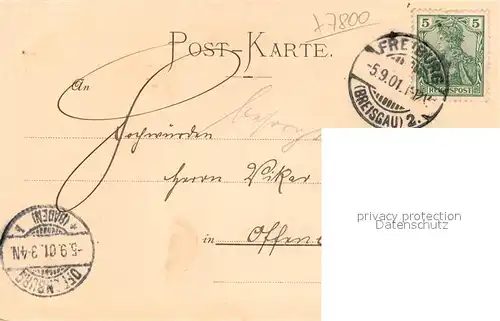 17800
POST-KARTE.
5
REICHSPOST
FREIBURG
-5.9.01.
(BREISGAU) 2.
An
Hochwürden
Herrn Vikar
in Offen
privacy protection
Datenschutz
OFFENBURG
-5.9.01.3-4N.
(BADEN)